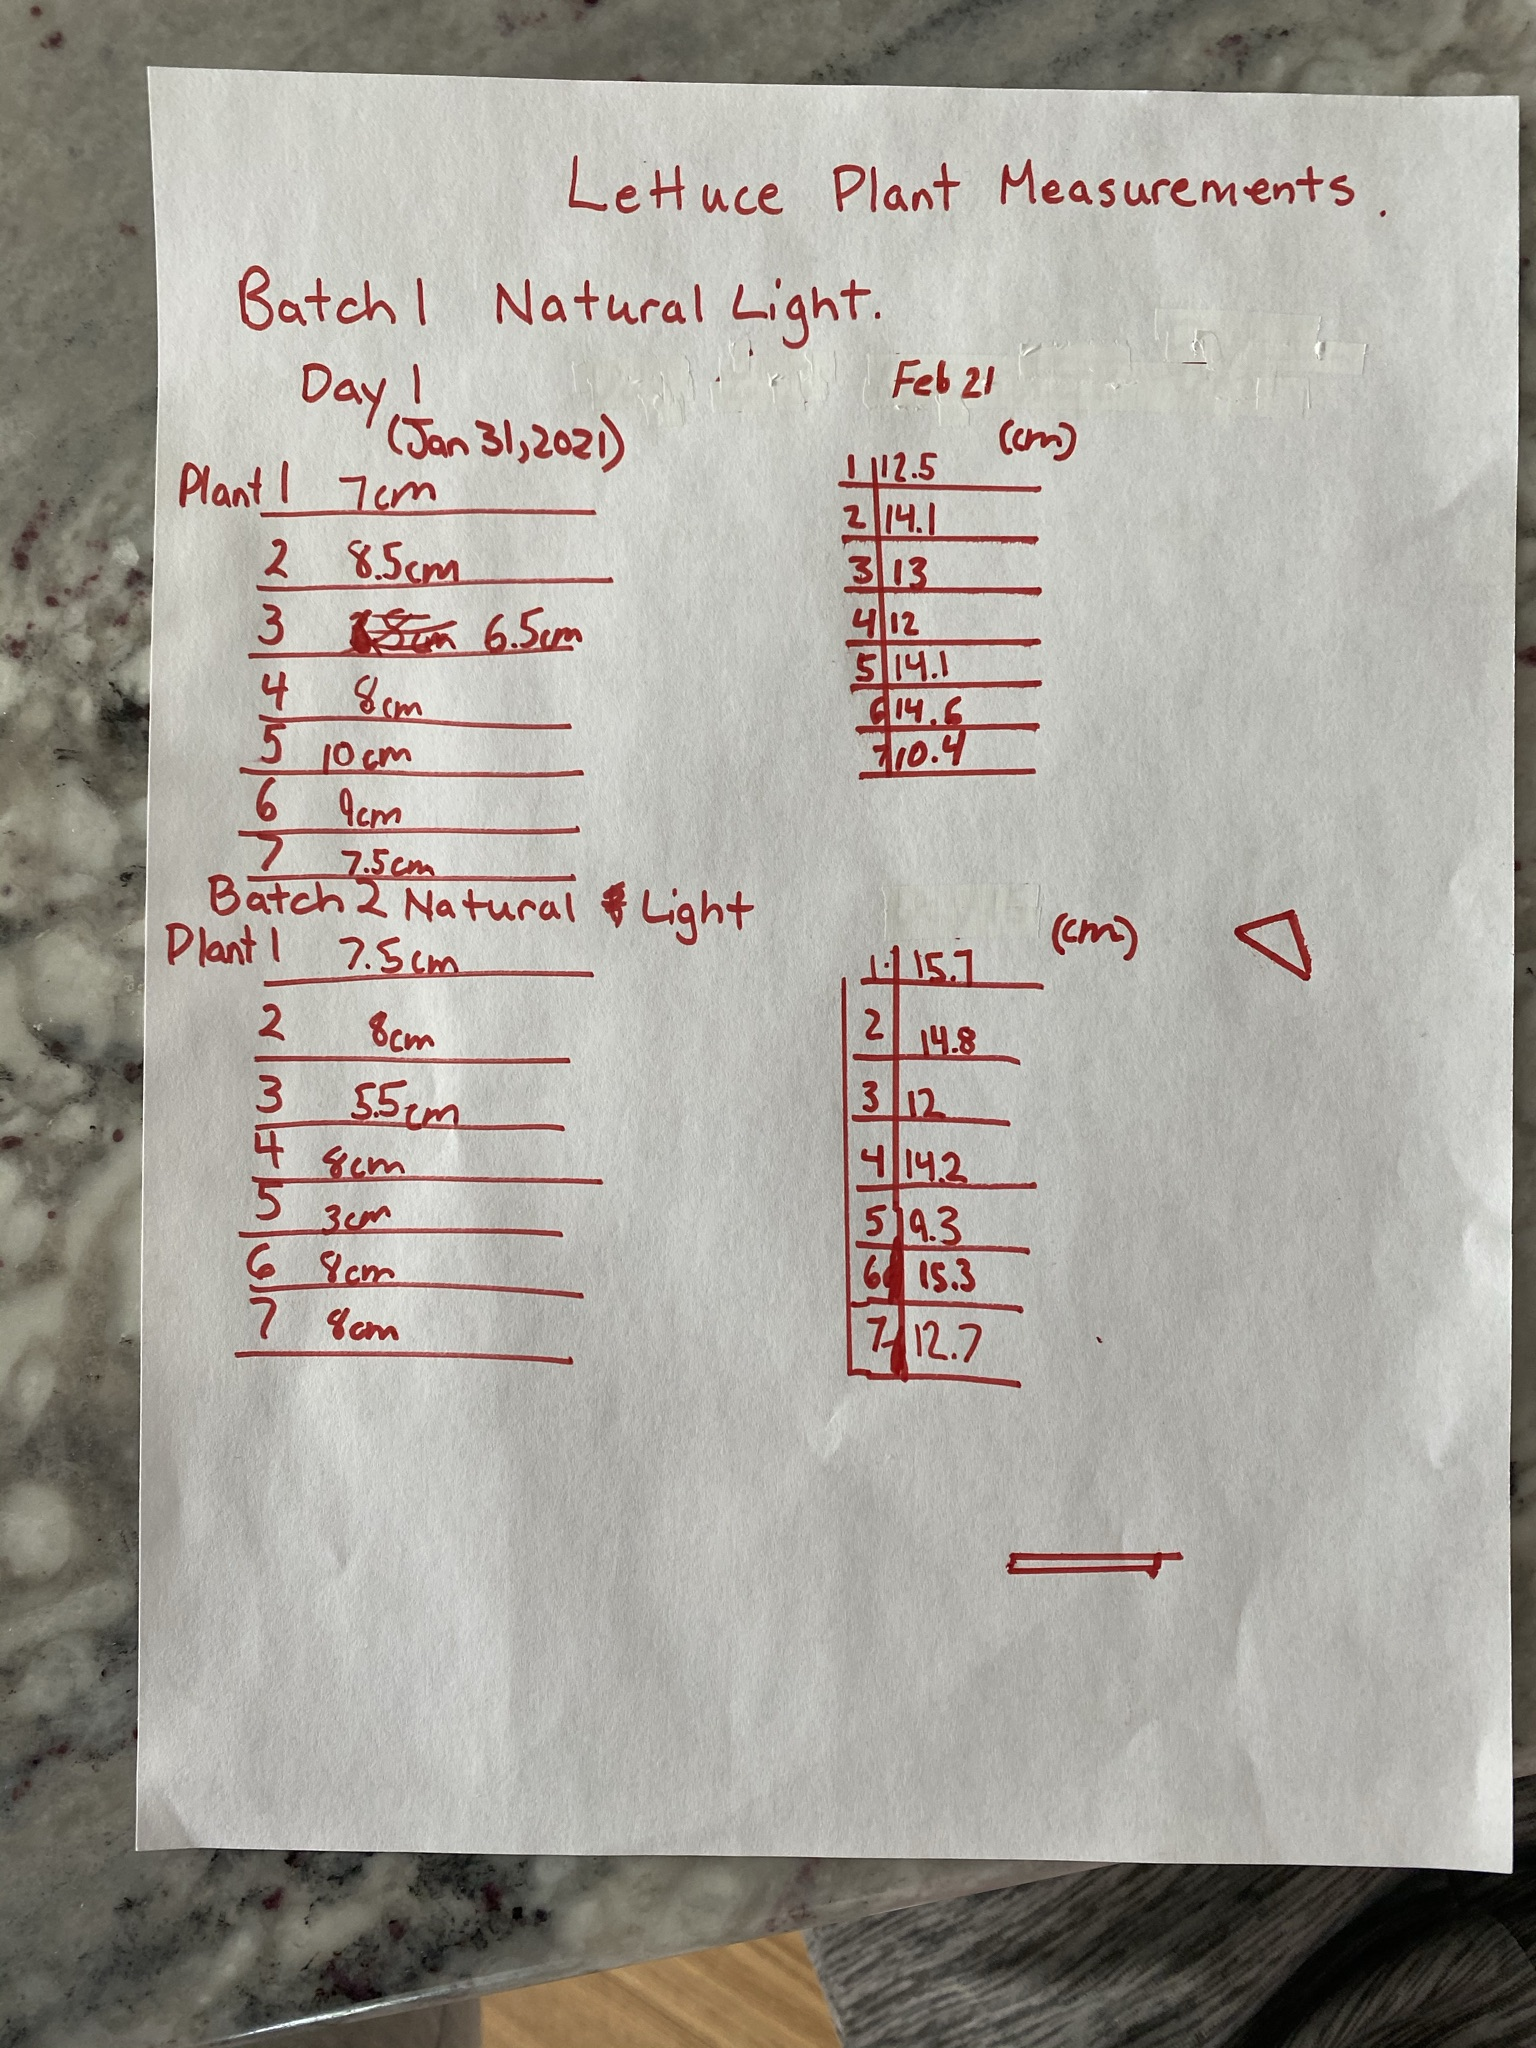 Lettuce Plant Measurements.
Batch 1 Natural Light.
Day 1
(Jan 31, 2021)
Plant 1 7cm
2 8.5cm
3 6.5cm
4 8cm
5 10cm
6 9cm
7 7.5cm
Feb 21
(cm)
1 12.5
2 14.1
3 13
4 12
5 14.1
6 14.6
7 10.4
Batch 2 Natural Light
Plant 1 7.5cm
2 8cm
3 5.5cm
4 8cm
5 3cm
6 8cm
7 8cm
(cm)
1. 15.7
2 14.8
3 12
4 14.2
5 9.3
6 15.3
7 12.7